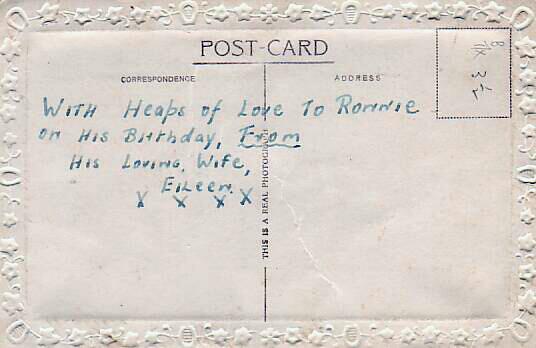 POST-CARD
CORRESPONDENCE
ADDRESS
WITH Heaps of Love To Ronnie
on His Birthday, From
His Loving Wife,
Eileen.
X X X X
THIS IS A REAL PHOTOGRAPH